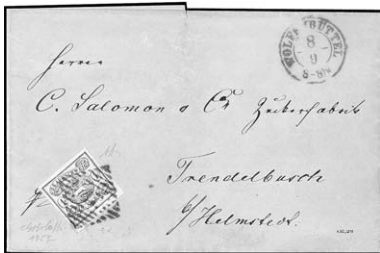 WOLFENBÜTTEL
8
9
8-8½
Herren
C. Salomon & Co Zuckerfabrik
Trendelbusch
b/ Helmstedt.